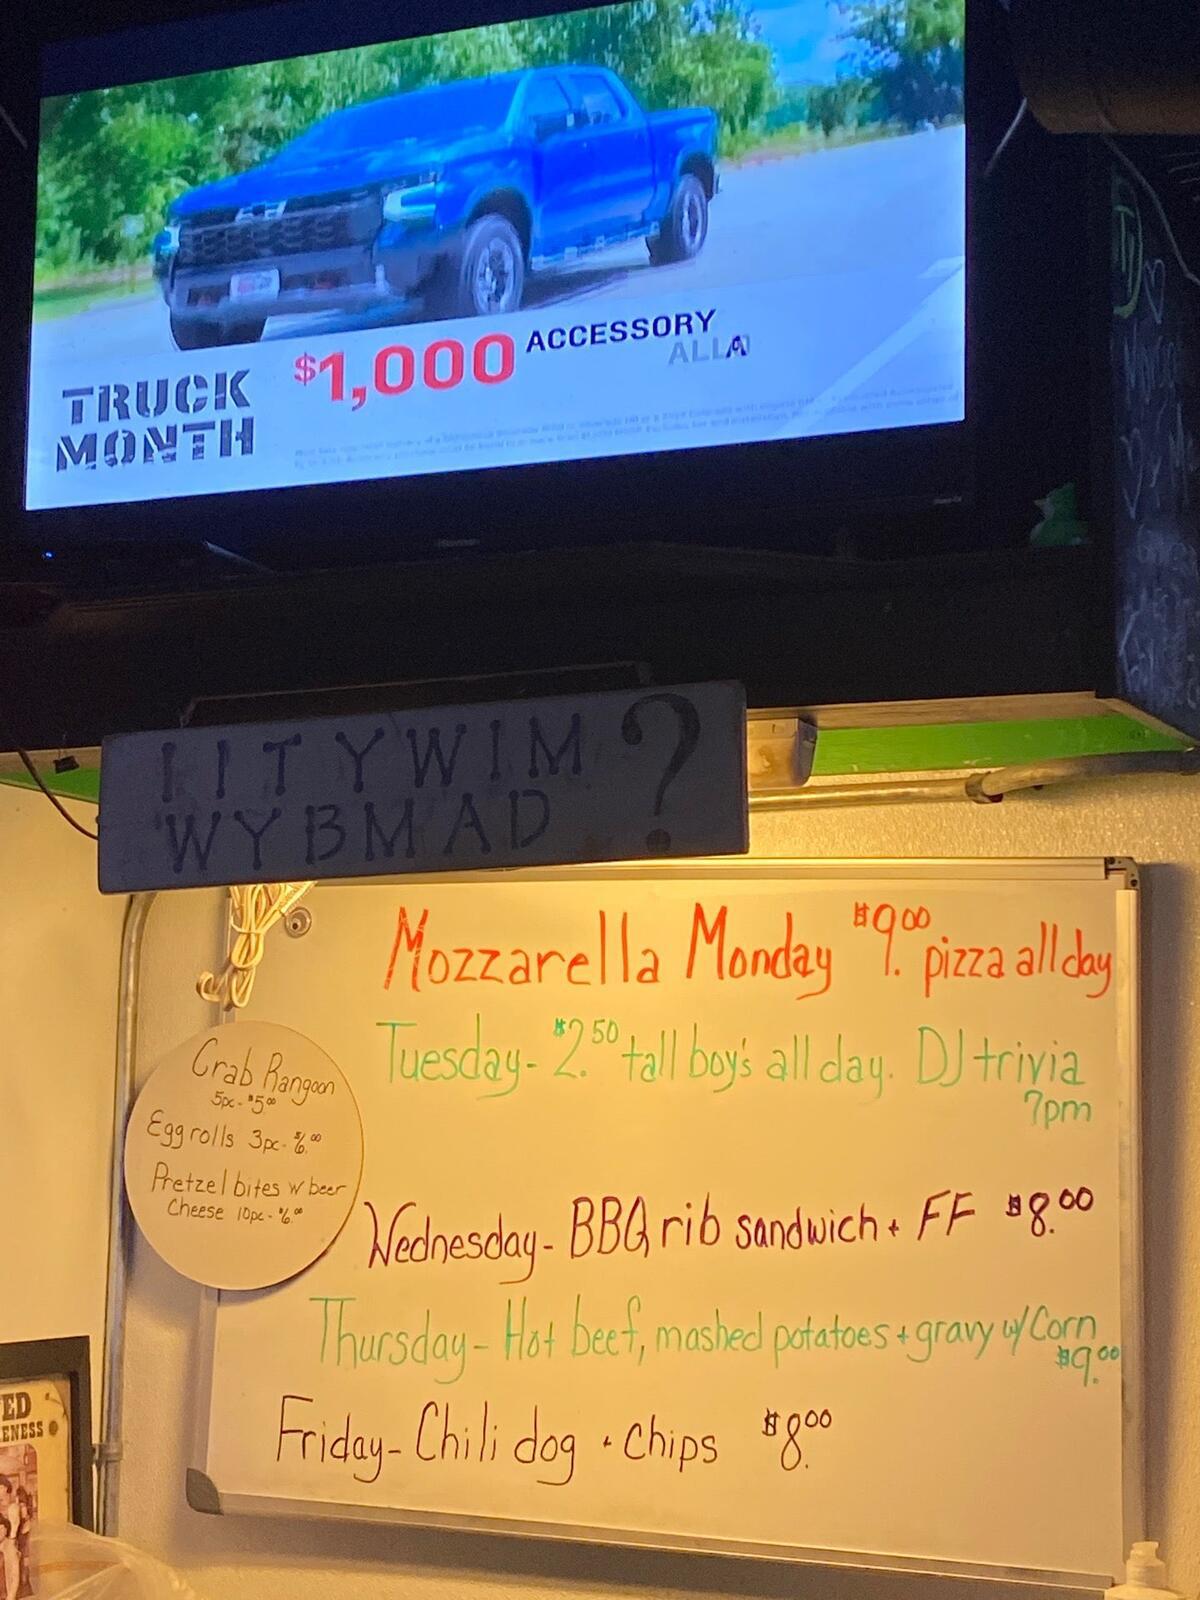 TRUCK
MONTH
$1,000 ACCESSORY
IITYWIM
WYBMAD ?
Mozzarella Monday $9.00 pizza all day
Tuesday- $2.50 tall boy's all day. DJ trivia
7pm
Crab Rangoon
5pc- $5.00
Egg rolls 3pc- $6.00
Pretzel bites w beer
Cheese 10pc- $6.00
Wednesday- BBQ rib sandwich + FF $8.00
Thursday- Hot beef, mashed potatoes + gravy w/ Corn
$9.00
Friday- Chili dog + chips $8.00
ED
ENESS